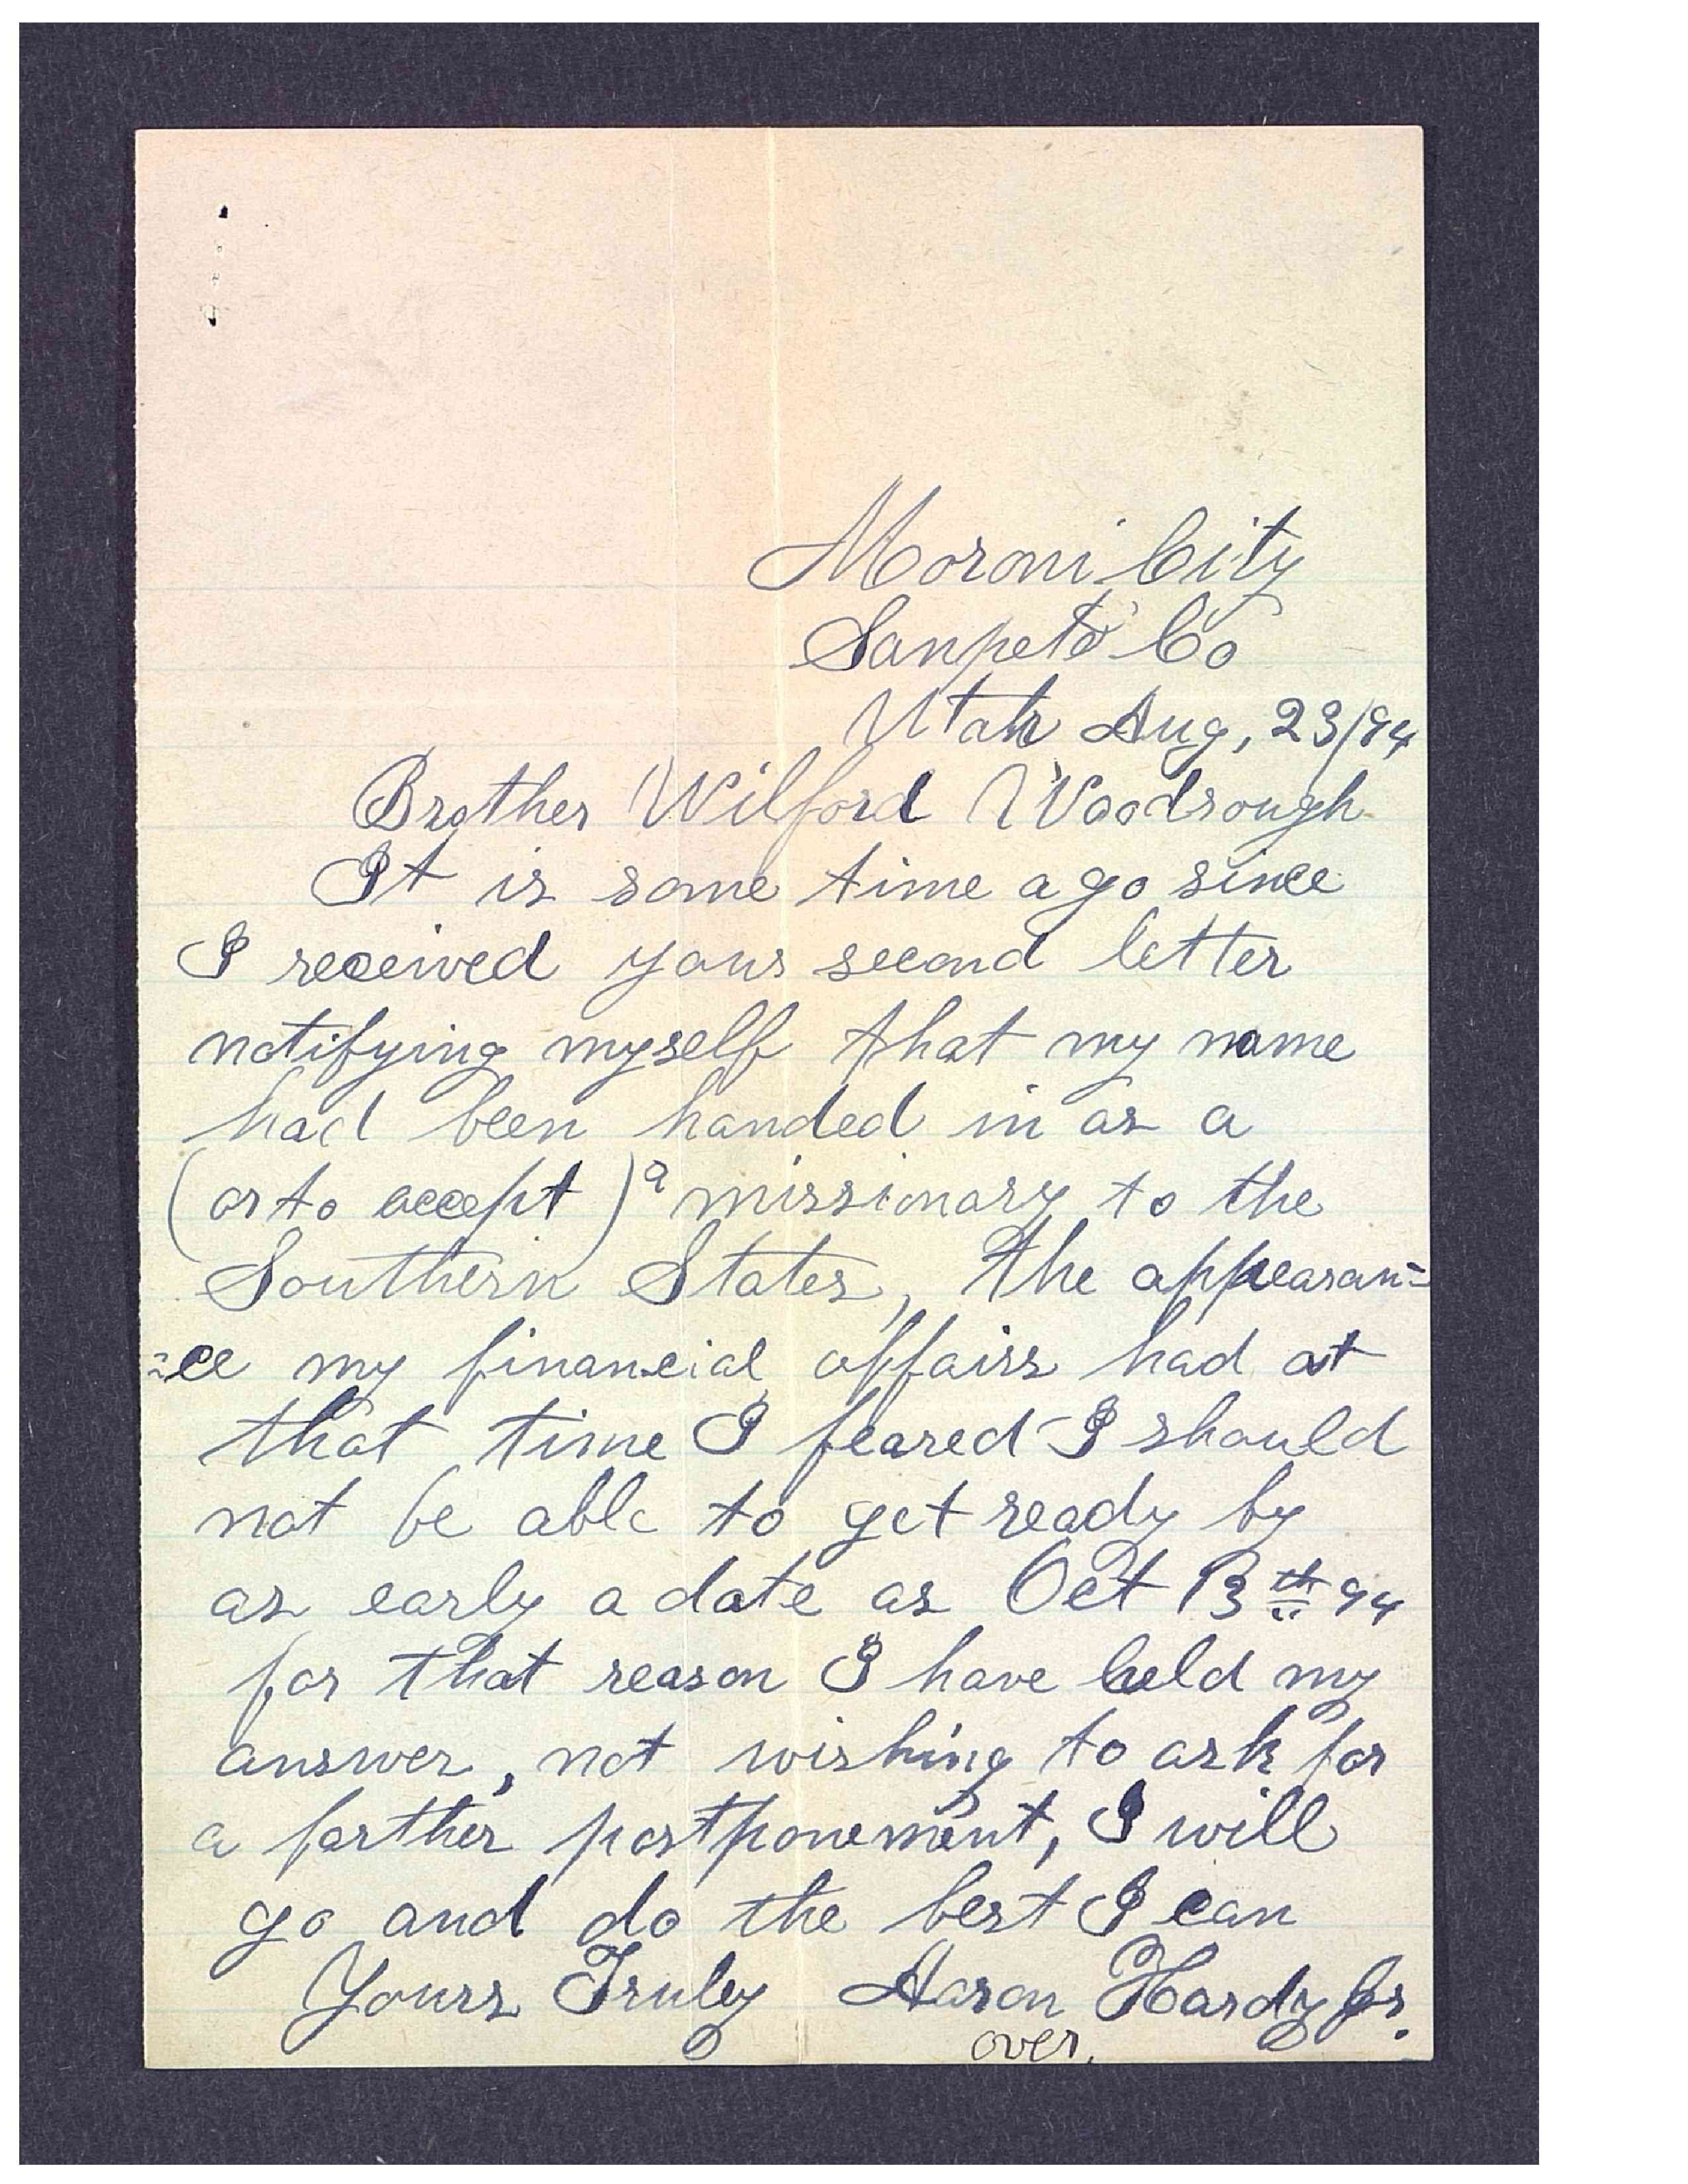 Moroni City
Sanpete Co
Utah Aug, 23/94
Brother Wilford Woodrough
It is some time ago since
I received your second letter
notifying myself that my name
had been handed in as a
(or to accept) a missionary to the
Southern States, The appearan=
=ce my financial affairs had at
that time I feared I should
not be able to get ready by
as early a date as Oct 13th 94
for that reason I have held my
answer, not wishing to ask for
a forther postponement, I will
go and do the best I can
Yours Truley Aaron Hardy Jr.
over.